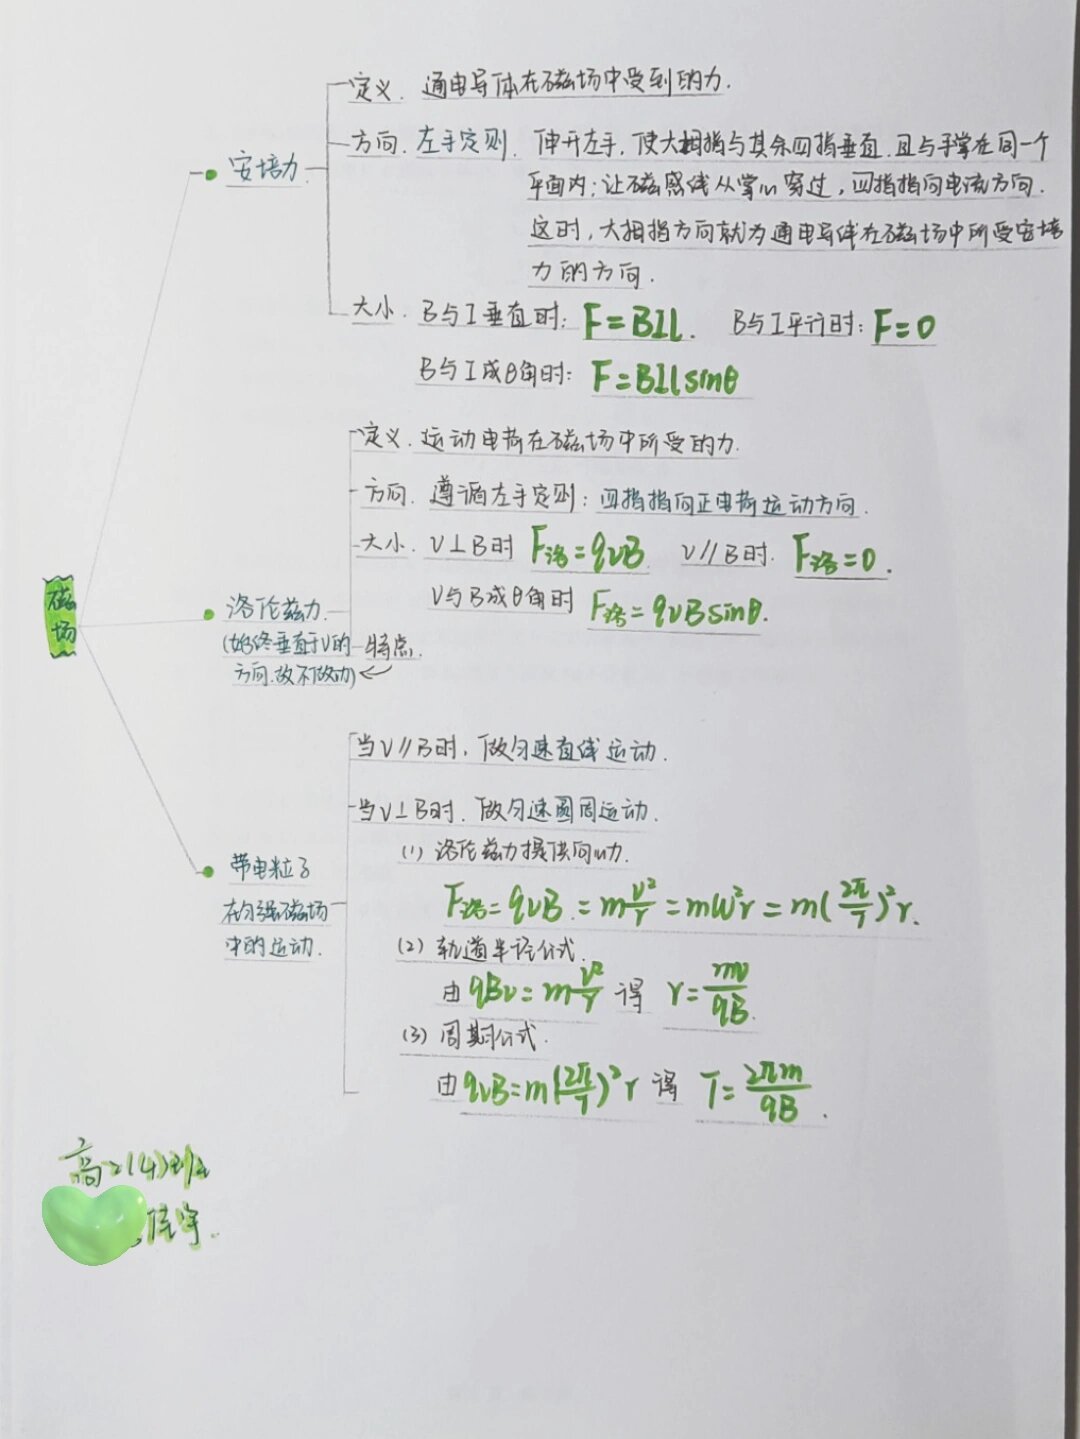 磁场
安培力
定义. 通电导体在磁场中受到的力.
方向. 左手定则. 伸开左手, 使大拇指与其余四指垂直. 且与手掌在同一个
平面内; 让磁感线从掌心穿过, 四指指向电流方向.
这时, 大拇指方向就为通电导线在磁场中所受安培
力的方向.
大小. B与I垂直时: F=BIl. B与I平行时: F=0
B与I成θ角时: F=BIlsinθ
洛伦兹力.
(始终垂直于V的
方向.故不做功)
定义. 运动电荷在磁场中所受的力.
方向. 遵循左手定则: 四指指向正电荷运动方向.
大小. V⊥B时 F洛=qvB V∥B时. F洛=0.
V与B成θ角时 F洛=qvBsinθ.
特点.
带电粒子
在匀强磁场
中的运动.
当V∥B时, 做匀速直线运动.
当V⊥B时. 做匀速圆周运动.
(1) 洛伦兹力提供向心力.
F洛=qvB=m\frac{v²}{r}=mw²r=m(\frac{2π}{T})²r.
(2) 轨道半径公式.
由qBv=m\frac{v²}{r} 得 r=\frac{mv}{qB}.
(3) 周期公式.
由qvB=m(\frac{2π}{T})²r 得 T=\frac{2πm}{qB}.
高二(4)班
佳宇.